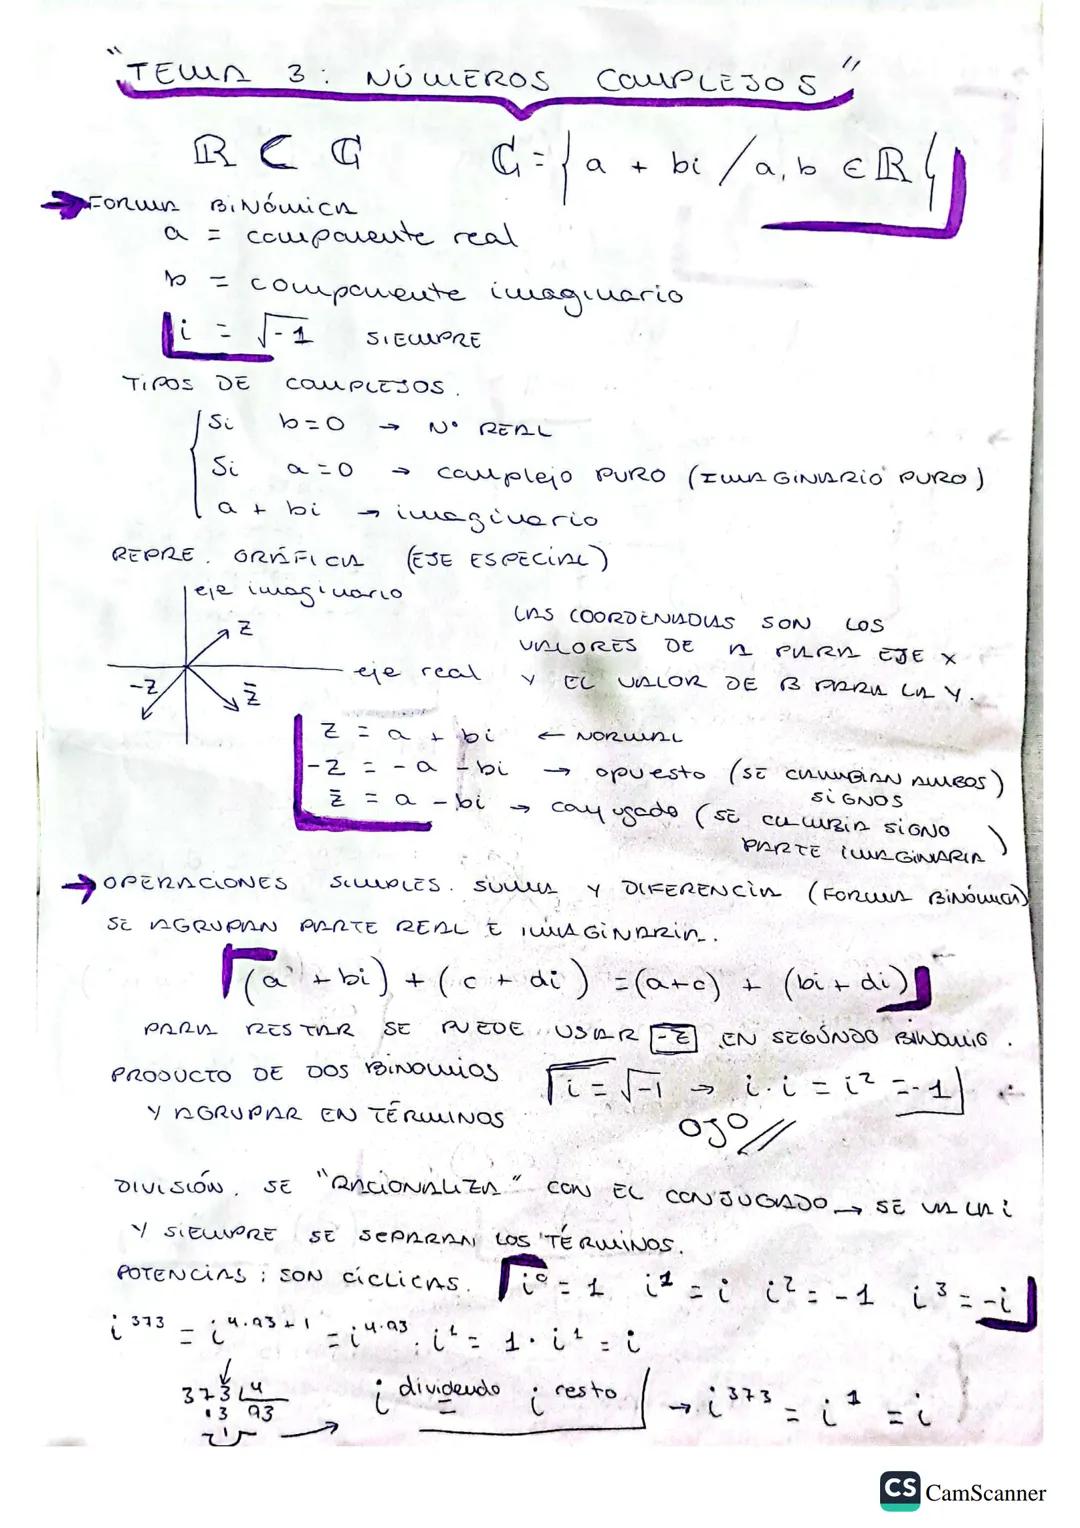 "TEMA 3: NÚMEROS COMPLEJOS"
ℝ ⊂ ℂ ℂ = { a + bi / a, b ∈ ℝ }
→ FORMA BINÓMICA
a = componente real
b = componente imaginario
i = √-1 SIEMPRE
TIPOS DE COMPLEJOS.
Si b=0 → Nº REAL
Si a=0 → complejo PURO (IMAGINARIO PURO)
a + bi → imaginario
REPRE. GRÁFICA (EJE ESPECIAL)
eje imaginario
z
eje real
-z
z̄
LAS COORDENADAS SON LOS
VALORES DE A PARA EJE X
Y EL VALOR DE B PARA LA Y.
z = a + bi ← NORMAL
-z = -a - bi → opuesto (SE CAMBIAN AMBOS)
SIGNOS
z̄ = a - bi → conjugado (SE CAMBIA SIGNO
PARTE IMAGINARIA)
→ OPERACIONES SIMPLES. SUMA Y DIFERENCIA (FORMA BINÓMICA)
SE AGRUPAN PARTE REAL E IMAGINARIA.
(a + bi) + (c + di) = (a+c) + (bi + di)
PARA RESTAR SE PUEDE USAR -z EN SEGÚNDO BINOMIO.
PRODUCTO DE DOS BINOMIOS
Y AGRUPAR EN TÉRMINOS
i = √-1 → i·i = i² = -1
OJO //
DIVISIÓN. SE "RACIONALIZA" CON EL CONJUGADO → SE VA LA i
Y SIEMPRE SE SEPARAN LOS TÉRMINOS.
POTENCIAS: SON CÍCLICAS. i⁰ = 1 i¹ = i i² = -1 i³ = -i
i³⁷³ = i⁴·⁹³⁺¹ = i⁴·⁹³ · i¹ = 1 · i¹ = i
373 | 4
13 93
1
i^dividendo = i^resto → i³⁷³ = i¹ = i
CS CamScanner